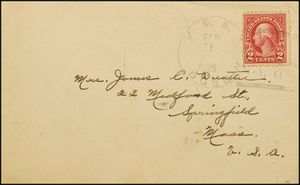 U. S. S.
FEB
11
1926
UNITED STATES POSTAGE
2 CENTS 2
Mrs. James C. Beattie
22 Mulford St.,
Springfield
Mass.
U. S. A.